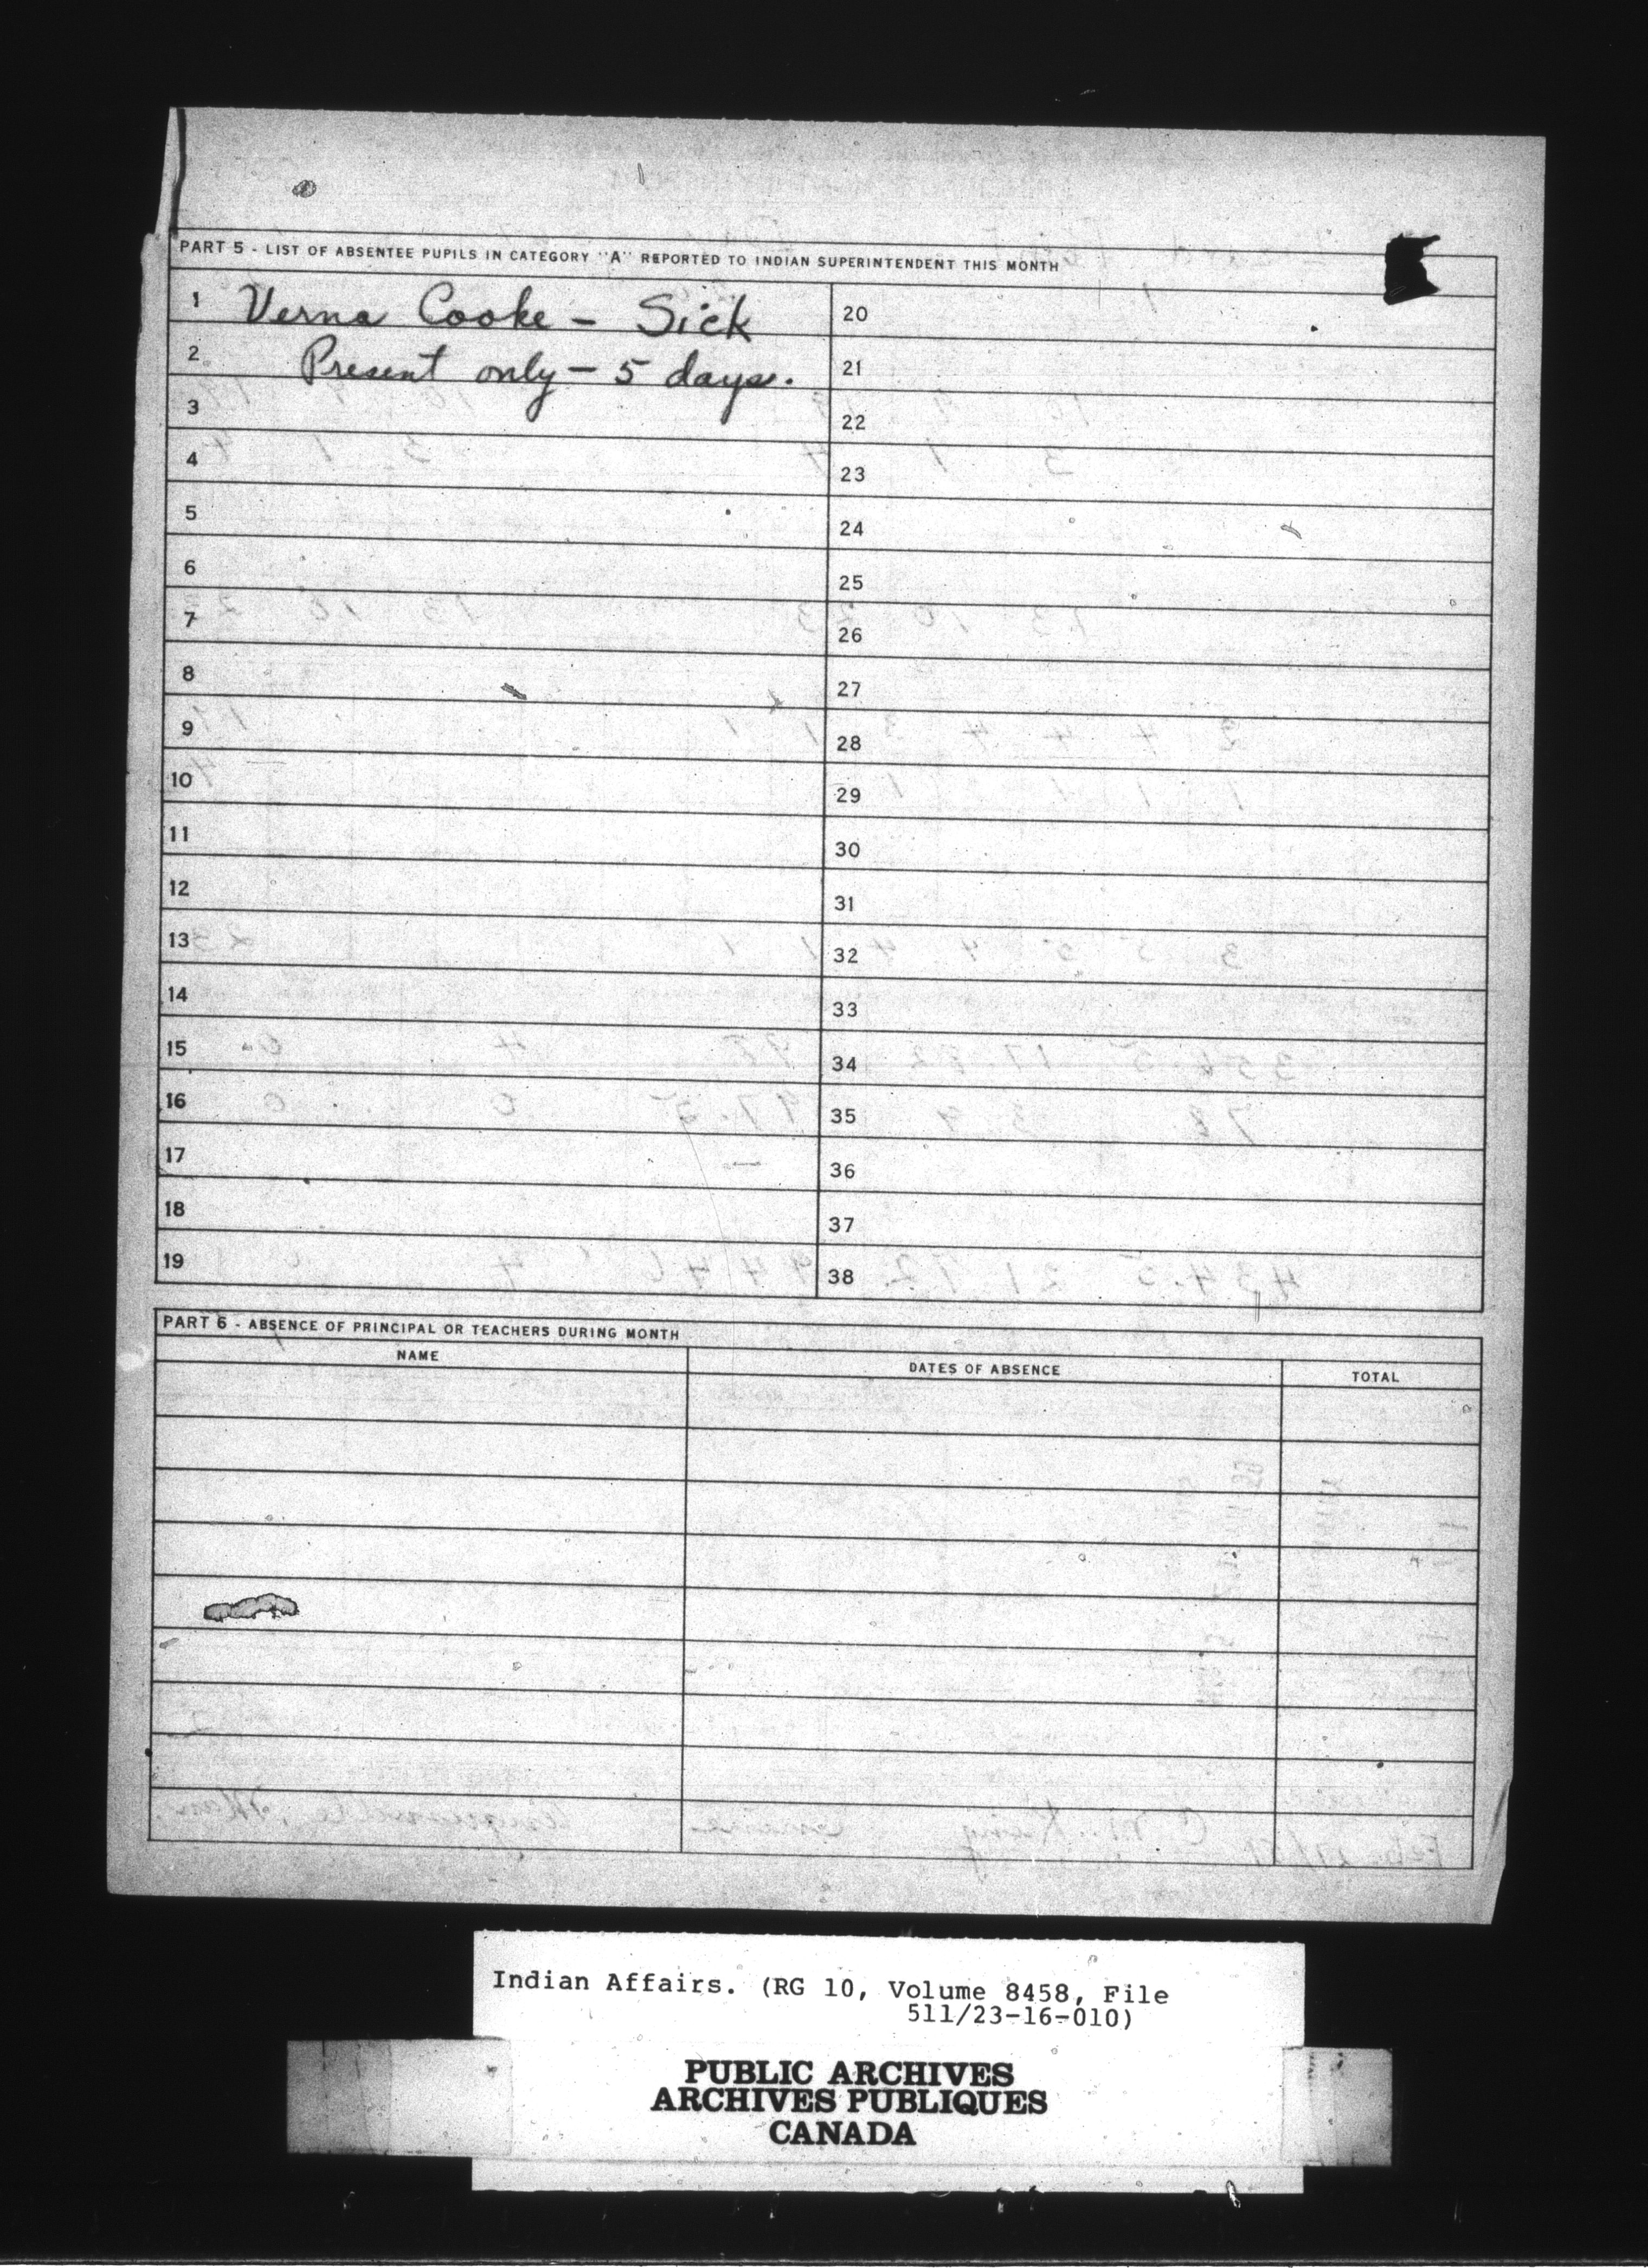 PART 5 - LIST OF ABSENTEE PUPILS IN CATEGORY "A" REPORTED TO INDIAN SUPERINTENDENT THIS MONTH
1 Verna Cooke - Sick 20
2 Present only - 5 days. 21
3 22
4 23
5 24
6 25
7 26
8 27
9 28
10 29
11 30
12 31
13 32
14 33
15 34
16 35
17 36
18 37
19 38
PART 6 - ABSENCE OF PRINCIPAL OR TEACHERS DURING MONTH
NAME DATES OF ABSENCE TOTAL
Indian Affairs. (RG 10, Volume 8458, File
511/23-16-010)
PUBLIC ARCHIVES
ARCHIVES PUBLIQUES
CANADA